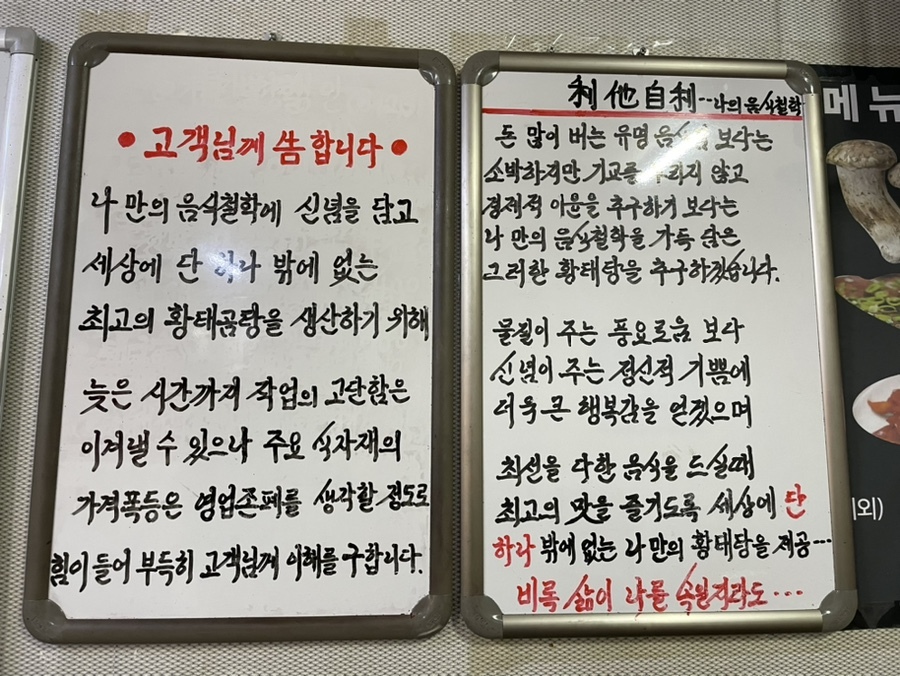 ● 고객님께 씀 합니다 ●
나 만의 음식철학에 신념을 담고
세상에 단 하나 밖에 없는
최고의 황태곰탕을 생산하기 위해
늦은 시간까지 작업의 고단함은
이겨낼 수 있으나 주요 식자재의
가격폭등은 영업존폐를 생각할 정도로
힘이 들어 부득히 고객님께 이해를 구합니다.
利他自利--나의 음식철학
돈 많이 버는 유명 음식점 보다는
소박하지만 기교를 부리지 않고
경제적 이윤을 추구하기 보다는
나 만의 음식철학을 가득 담은
그러한 황태탕을 추구하겠습니다.
물질이 주는 풍요로움 보다
신념이 주는 정신적 기쁨에
더욱 큰 행복감을 얻겠으며
최선을 다한 음식을 드실때
최고의 맛을 즐기도록 세상에 단
하나 밖에 없는 나 만의 황태탕을 제공···
비록 삶이 나를 속일지라도···
메뉴
외)